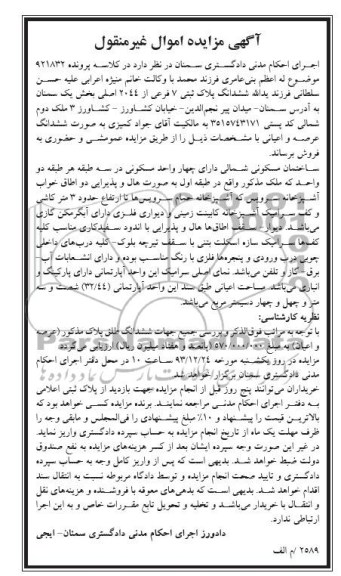 آگهی مزایده اموال غیرمنقول
اجرای احکام مدنی دادگستری سمنان در نظر دارد در کلاسه پرونده ۹۲۱۸۳۲
موضوع له اعظم بنی‌عامری فرزند محمد با وکالت خانم منیژه اعرابی علیه حسن
سلطانی فرزند یدالله ششدانگ پلاک ثبتی ۷ فرعی از ۲۰۴۴ اصلی بخش یک سمنان
به آدرس سمنان- میدان پیر نجم‌الدین- خیابان کشاورز - کشاورز ۳ ملک دوم
شمالی کد پستی ۳۵۱۵۷۴۳۱۷۱ به مالکیت آقای جواد کمیزی به صورت ششدانگ
عرصه و اعیانی با مشخصات ذیل را از طریق مزایده عمومشی و حضوری به
فروش برساند.
ساختمان مسکونی شمالی دارای چهار واحد مسکونی در سه طبقه هر طبقه دو
واحد که ملک مذکور واقع در طبقه اول به صورت هال و پذیرایی دو اطاق خواب
آشپزخانه - سرویس که آشپزخانه حمام سرویس‌ها تا ارتفاع حدود ۳ متر کاشی
و کف سرامیک آشپزخانه کابینت زمینی و دیواری فلزی دارای آبگرمکن گازی
می‌باشد. دیوار و سقف اطاق‌ها هال و پذیرایی با اندود سفیدکاری مناسب کلیه
کف‌ها سرامیک سازه اسکلت بتنی با سقف تیرچه بلوک- کلیه درب‌های داخلی
چوبی درب ورودی و پنجره‌ها فلزی با رنگ مناسب بوده و دارای انشعابات آب-
برق- گاز و تلفن می‌باشد. نمای اصلی سرامیک این واحد آپارتمانی دارای پارکینگ و
انباری می‌باشد. مساحت اعیانی طبق سند این واحد آپارتمانی (۳۲/۴۴) شصت و سه
متر و چهل و چهار دسیمتر مربع می‌باشد.
نظریه کارشناسی:
با توجه به مراتب فوق‌الذکر و بررسی جمیع جهات ششدانگ طلق پلاک مذکور (عرصه
و اعیان) به مبلغ ۵۷۰/۰۰۰/۰۰۰ (پانصد و هفتاد میلیون ریال) ارزیابی می‌گردد
مزایده در روز یکشنبه مورخه ۹۳/۱۲/۲۴ ساعت ۱۰ در محل دفتر اجرای احکام
مدنی دادگستری سمنان برگزار خواهد شد.
خریداران می‌توانند پنج روز قبل از انجام مزایده جهت بازدید از پلاک ثبتی اعلامی
به دفتر اجرای احکام مدنی مراجعه نمایند. برنده مزایده کسی خواهد بود که
بالاترین قیمت را پیشنهاد و ۱۰٪ مبلغ پیشنهادی را فی‌المجلس و مابقی وجه را
ظرف مهلت یک ماه از تاریخ انجام مزایده به حساب سپرده دادگستری واریز نماید.
در غیر این صورت وجه سپرده ایشان بعد از کسر هزینه‌های مزایده به نفع صندوق
دولت ضبط خواهد شد. بدیهی است که پس از واریز کامل وجه به حساب سپرده
دادگستری و تایید صحت انجام مزایده و توسط دادگاه مربوطه نسبت به انتقال سند
اقدام خواهد شد. بدیهی است که بدهی‌های معوقه با فروشنده و هزینه‌های نقل
و انتقال با خریدار می‌باشد و تخلیه و تحویل تابع مقررات خاص و به این اجرا
ارتباطی ندارد.
دادورز اجرای احکام مدنی دادگستری سمنان- ایجی
۲۵۸۹ /م الف